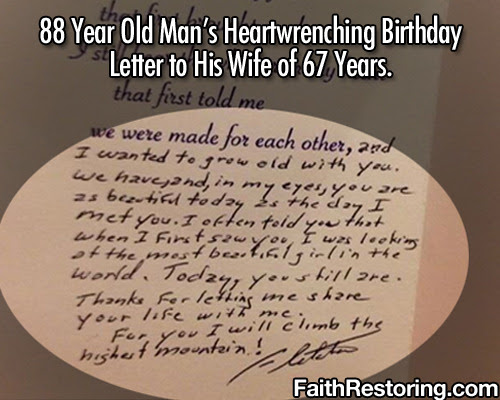 88 Year Old Man's Heartwrenching Birthday
Letter to His Wife of 67 Years.
that first told me
we were made for each other, and
I wanted to grow old with you.
We have, and, in my eyes, you are
as beautiful today as the day I
met you. I often told you that
when I first saw you, I was looking
at the most beautiful girl in the
world. Today, you still are.
Thanks for letting me share
your life with me.
For you I will climb the
highest mountain!
FaithRestoring.com